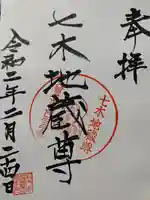 奉拝
七木地蔵尊
令和二年二月二四日
七木地蔵尊